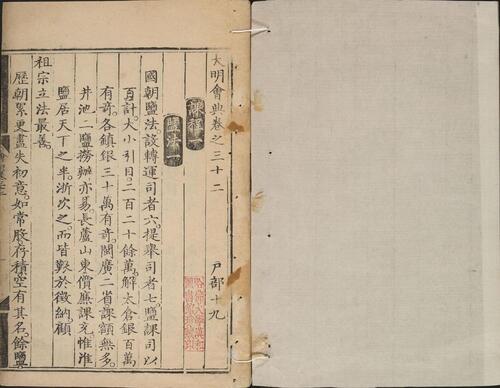 大明會典卷之三十二
戶部十九
課程一
鹽法一
國朝鹽法設轉運司者六提舉司者七鹽課司以
百計大小引目二百二十餘萬解太倉銀百萬
有奇各鎮銀三十萬有奇閩廣二省課額無多
井池二鹽務辦亦易長蘆山東價廉課充惟淮
鹽居天下之半浙次之而皆艱於徵納顧
祖宗立法最善
歷朝累更盡失初意如常股存積空有其名餘鹽